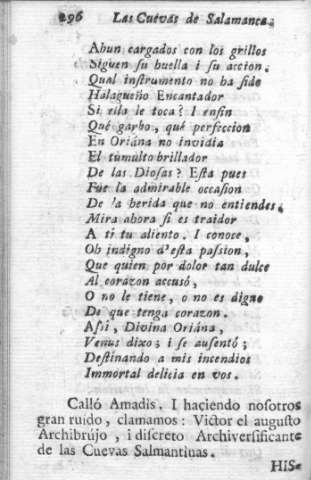 296 Las Cuevas de Salamanca.
Ahun cargados con los grillos
Siguen ſu huella i ſu accion.
Qual inſtrumento no ha ſido
Halagueño Encantador
Si ella le toca? I enfin
Qué garbo, qué perfeccion
En Oriána no invidia
El túmulto brillador
De las Dioſas? Eſta pues
Fúe la admirable occaſion
De la herida que no entiendes.
Mira ahora ſi es traidor
A ti tu aliento. I conoce,
Oh indigno d'eſta paſsion,
Que quien por dolor tan dulce
Al corazon accusó,
O no le tiene, o no es digno
De que tenga corazon.
Aſsi, Divina Oriána,
Venus dixo; i ſe auſentó;
Deſtinando a mis incendios
Immortal delicia en vos.
Calló Amadis. I haciendo noſotros
gran ruido, clamamos: Victor el auguſto
Archibrújo, i diſcreto Archiverſificante
de las Cuevas Salmantinas.
HIS-